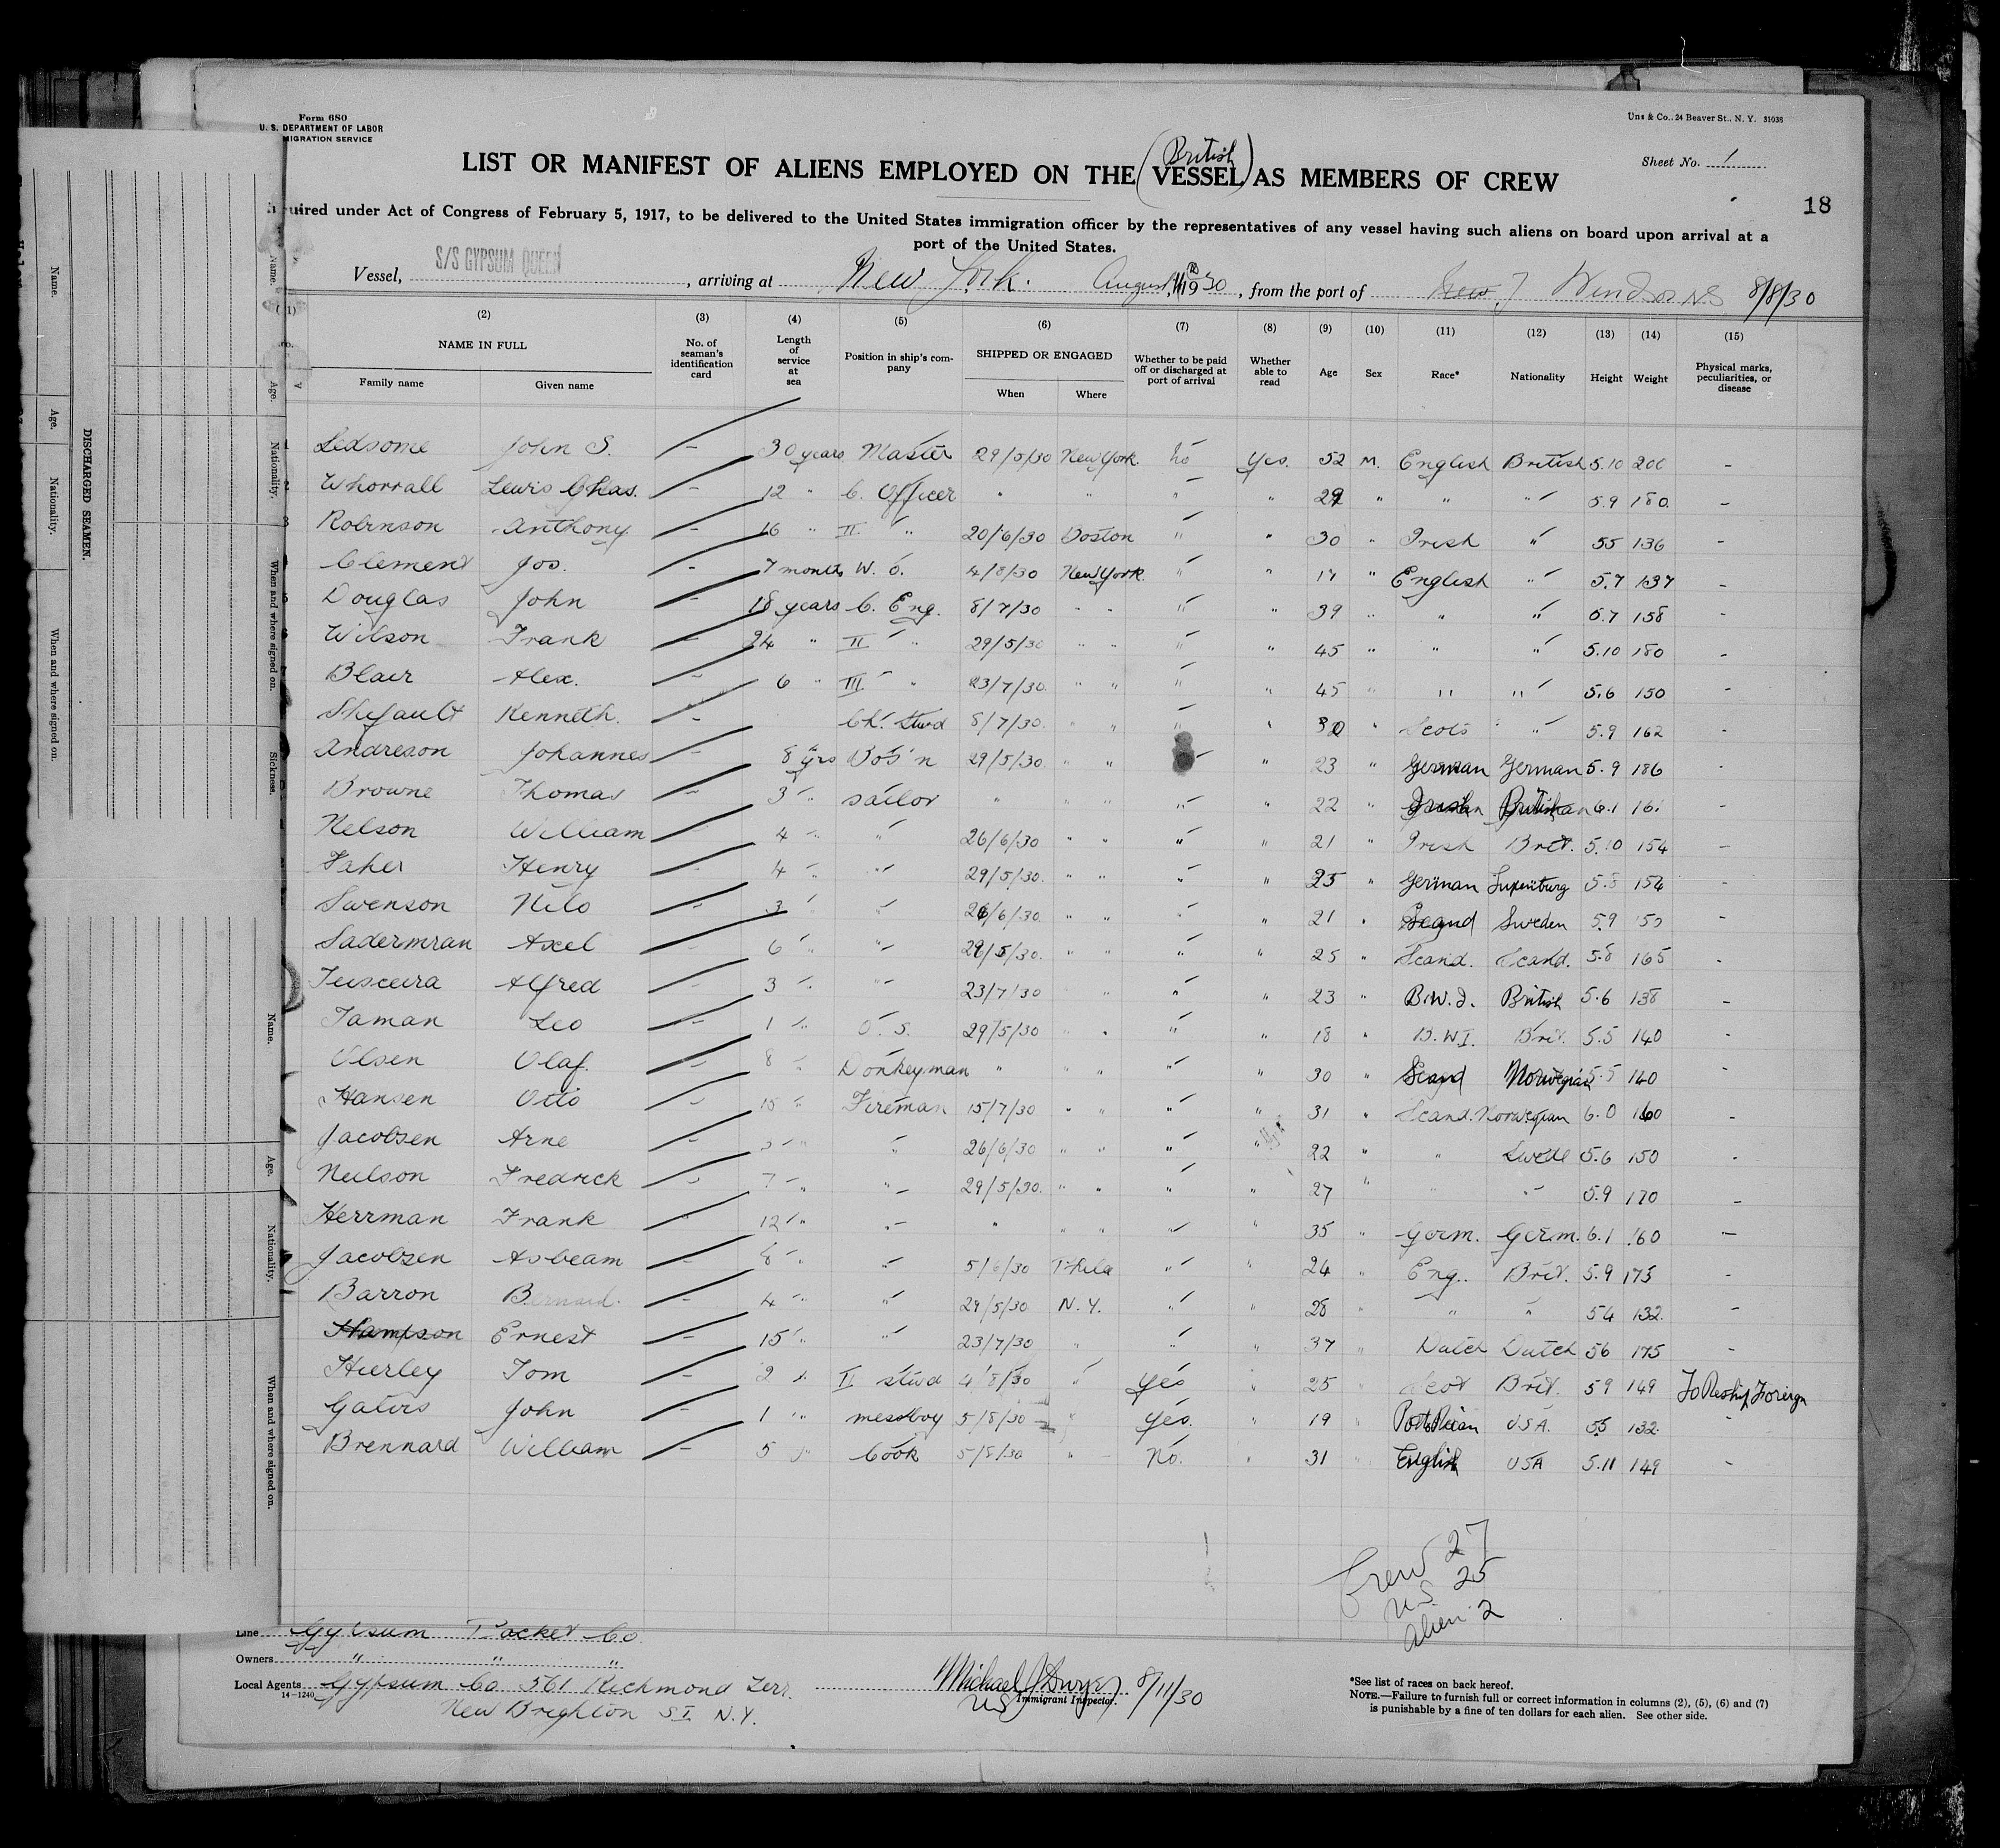 Form 680
U. S. DEPARTMENT OF LABOR
MIGRATION SERVICE
Uns & Co., 24 Beaver St., N. Y. 31038
Sheet No. 1
(British)
LIST OR MANIFEST OF ALIENS EMPLOYED ON THE VESSEL AS MEMBERS OF CREW
18
uired under Act of Congress of February 5, 1917, to be delivered to the United States immigration officer by the representatives of any vessel having such aliens on board upon arrival at a
port of the United States.
Vessel, S/S GYPSUM QUEEN, arriving at New York. August 11 1930, from the port of Windsor NS 8/8/30
(2) (3) (4) (5) (6) (7) (8) (9) (10) (11) (12) (13) (14) (15)
NAME IN FULL Family name Given name No. of seaman's identification card Length of service at sea Position in ship's company SHIPPED OR ENGAGED When Where Whether to be paid off or discharged at port of arrival Whether able to read Age Sex Race* Nationality Height Weight Physical marks, peculiarities, or disease
1 Ledsome John S. – 30 years Master 29/5/30 New York. no Yes. 52 M. English British 5.10 200 –
Whorrall Lewis Chas. – 12 " C. Officer " " " " 29 " " " 5.9 180. –
3 Robinson Anthony – 16 " II " 20/6/30 Boston " " 30 " Irish " 55 136 –
Clement Jos. – 7 months W. O. 4/8/30 New York. " " 17 " English " 5.7 137 –
5 Douglas John – 18 years C. Eng. 8/7/30 " " " " 39 " " " 5.7 158 –
6 Wilson Frank – 24 " II " 29/5/30 " " " " 45 " " " 5.10 180 –
7 Blair Alex. – 6 " III " 23/7/30. " " " " 45 " " " 5.6 150 –
Kenneth. – Ch. Stwd 8/7/30. " " " " 30 " Scots " 5.9 162 –
Andreson Johannes – 8 yrs Bos'n 29/5/30 " " " 23 " German German 5.9 186 –
Browne Thomas – 3 " sailor " " " " " 22 " 6.1 –
Nelson William – 4 " " 26/6/30 " " " " 21 " Irish Brit. 5.10 154 –
Faher Henry – 4 " " 29/5/30. " " " " 25 " German 5.8 154 –
Swenson Nilo – 3 " " 26/6/30. " " " " 21 " Scand Sweden 5.9 –
Sadermran Axel – 6 " " 29/5/30. " " " " 25 " Scand. Scand. 5.8 165 –
Teisceira Alfred – 3 " " 23/7/30 " " " 23 " B.W.I. British 5.6 138 –
Taman Leo – 1 " O. S. 29/5/30 " " " " 18 " B.W.I. Brit. 5.5 140 –
Olsen Olaf. – 8 " Donkeyman " " " " " 30 " Scand Norwegian 5.5 140 –
Hansen Otto – Fireman 15/7/30 " " " " 31 " Scand. Norwegian 6.0 160
Jacobsen Arne – " 26/6/30 " " " " 22 " " Swede 5.6 150 –
Neilson Fredrick – 7 " " 29/5/30. " " " " 27 " " " 5.9 170 –
Herrman Frank 12 " " " " " " " 35 " Germ. Germ. 6.1 160 –
Jacobsen Asbeam – 8 " " 5/6/30 Phila " " 24 " Eng. Brit. 5.9 175 –
Barron Bernard. – 4 " " 29/5/30 N. Y. " " 28 " " " 54 132. –
Hampson Ernest – 15 " " 23/7/30 " " " 37 " Dutch Dutch 56 175 –
Hurley Tom – 2 " II stwd 4/8/30 " Yes " 25 " Scot Brit. 59 149 To Reship Foreign
Gators John – 1 " messboy 5/8/30 " Yes. " 19 " Porto Rican USA. 55 132. –
Brennard William – 5 " Cook 5/8/30 " No. " 31 " English USA 5.11 149 –
Crew 27
US 25
Alien 2
Line Gypsum Packet Co.
Owners " " "
Local Agents Gypsum Co 561 Richmond Terr.
New Brighton S I N.Y.
14—1240
Michael J Dwyer 8/11/30
US Immigrant Inspector.
*See list of races on back hereof.
NOTE.—Failure to furnish full or correct information in columns (2), (5), (6) and (7)
is punishable by a fine of ten dollars for each alien. See other side.
DISCHARGED SEAMEN.
Name.
Age.
Nationality.
When and where signed on.
Name.
Age.
Nationality.
When and where signed on.
Sickness.
Name.
Age.
Nationality.
When and where signed on.